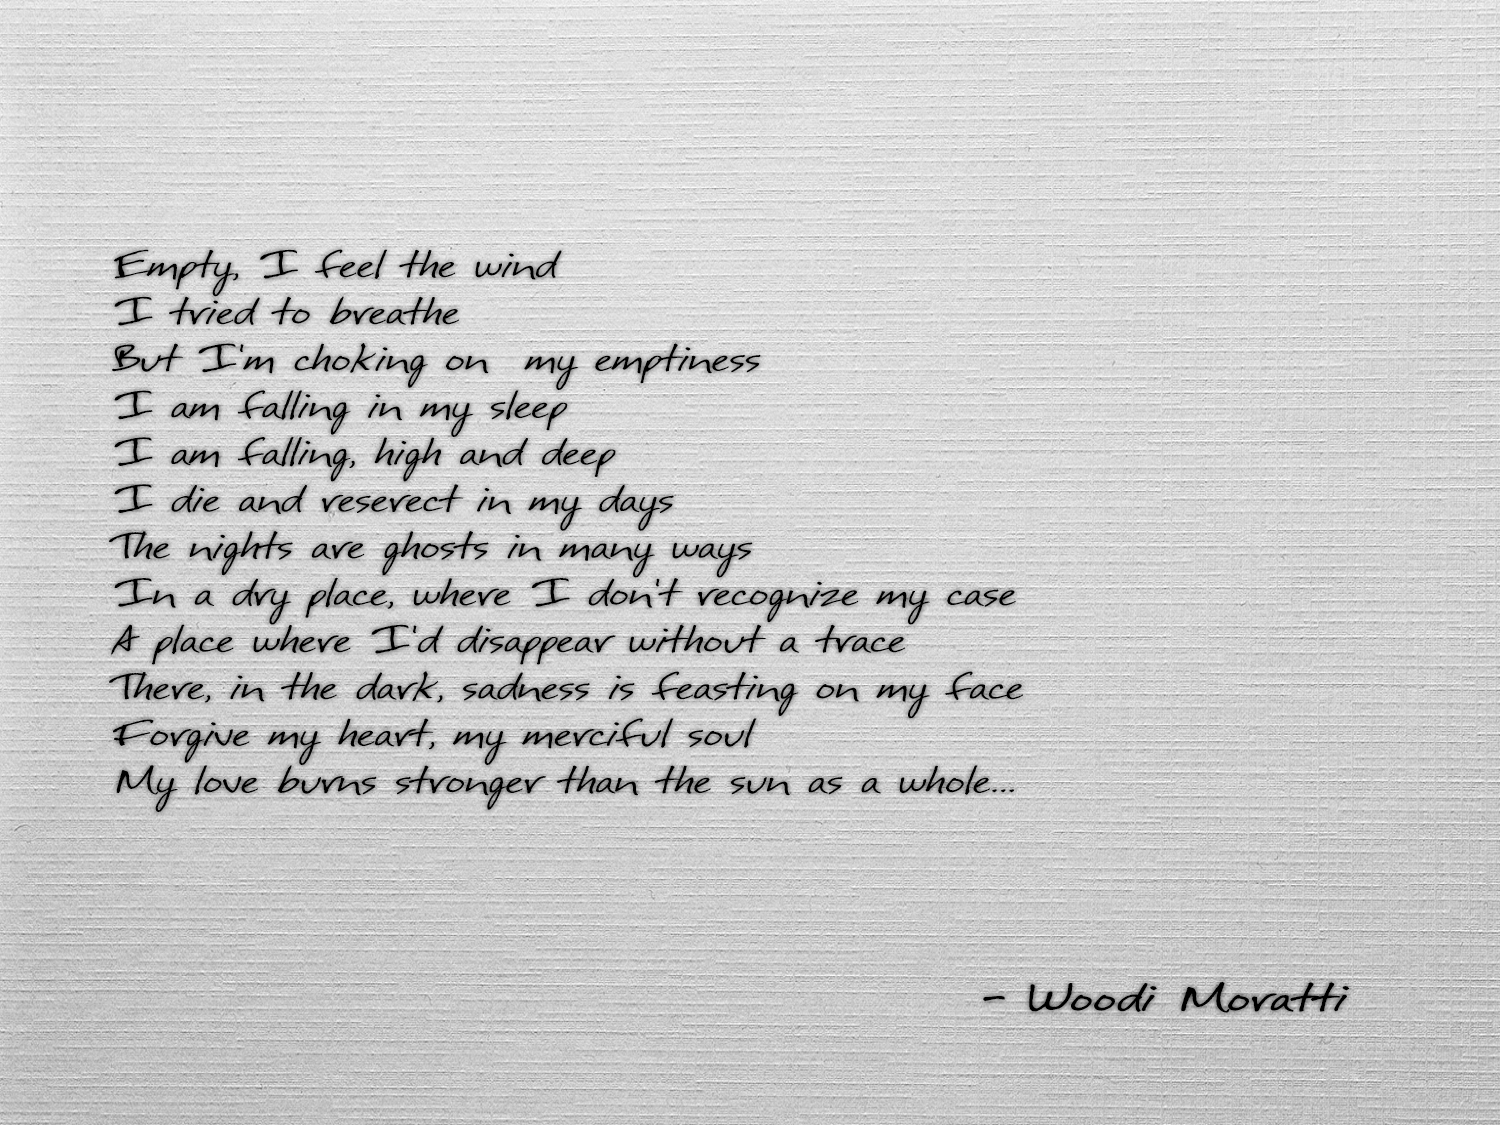 Empty, I feel the wind
I tried to breathe
But I'm choking on  my emptiness
I am falling in my sleep
I am falling, high and deep
I die and reserect in my days
The nights are ghosts in many ways
In a dry place, where I don't recognize my case
A place where I'd disappear without a trace
There, in the dark, sadness is feasting on my face
Forgive my heart, my merciful soul
My love burns stronger than the sun as a whole...
- Woodi Moratti